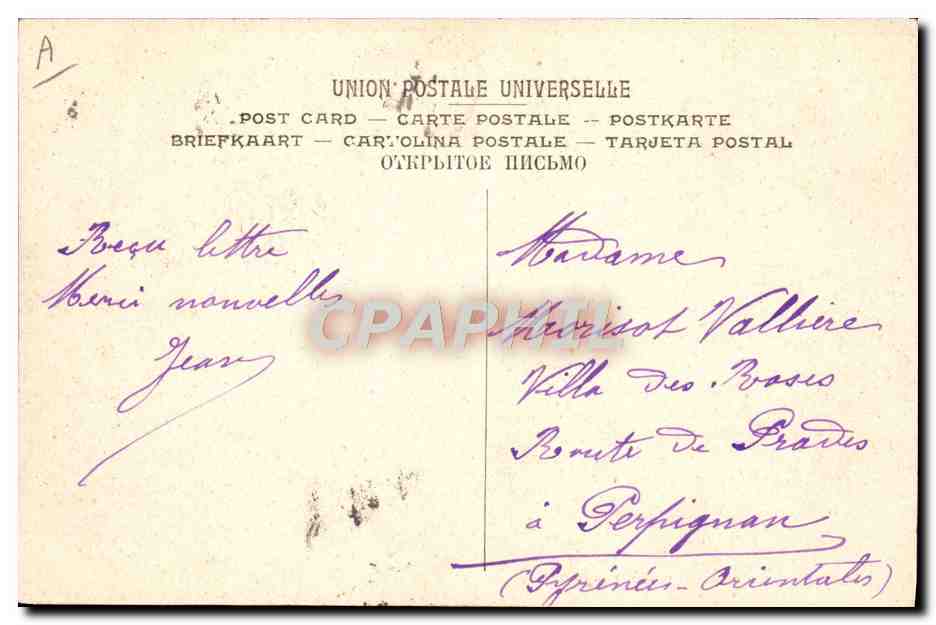 A
UNION POSTALE UNIVERSELLE
POST CARD — CARTE POSTALE — POSTKARTE
BRIEFKAART — CARTOLINA POSTALE — TARJETA POSTAL
ОТКРЫТОЕ ПИСЬМО
Reçu lettre
Merci nouvelles
Jean
Madame
Morisot Vallière
Villa des Roses
Route de Prades
à Perpignan
(Pyrénées-Orientales)
CPAPHIL